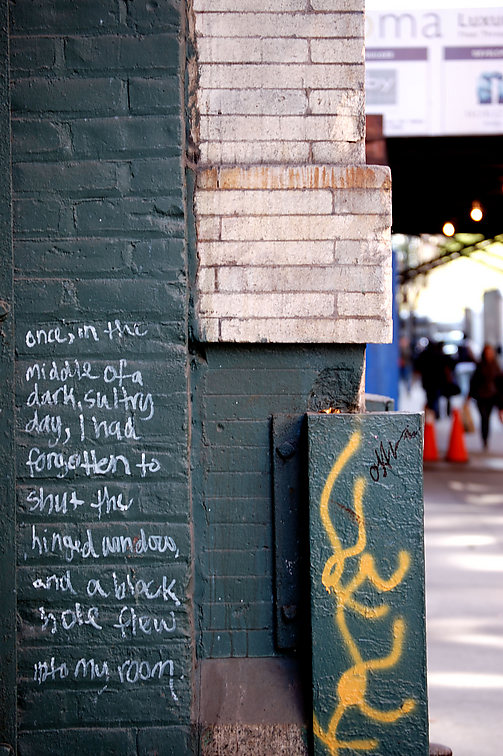 oma
Luxu
once, in the
middle of a
dark, sultry
day, I had
forgotten to
shut the
hinged window,
and a black
hole flew
into my room